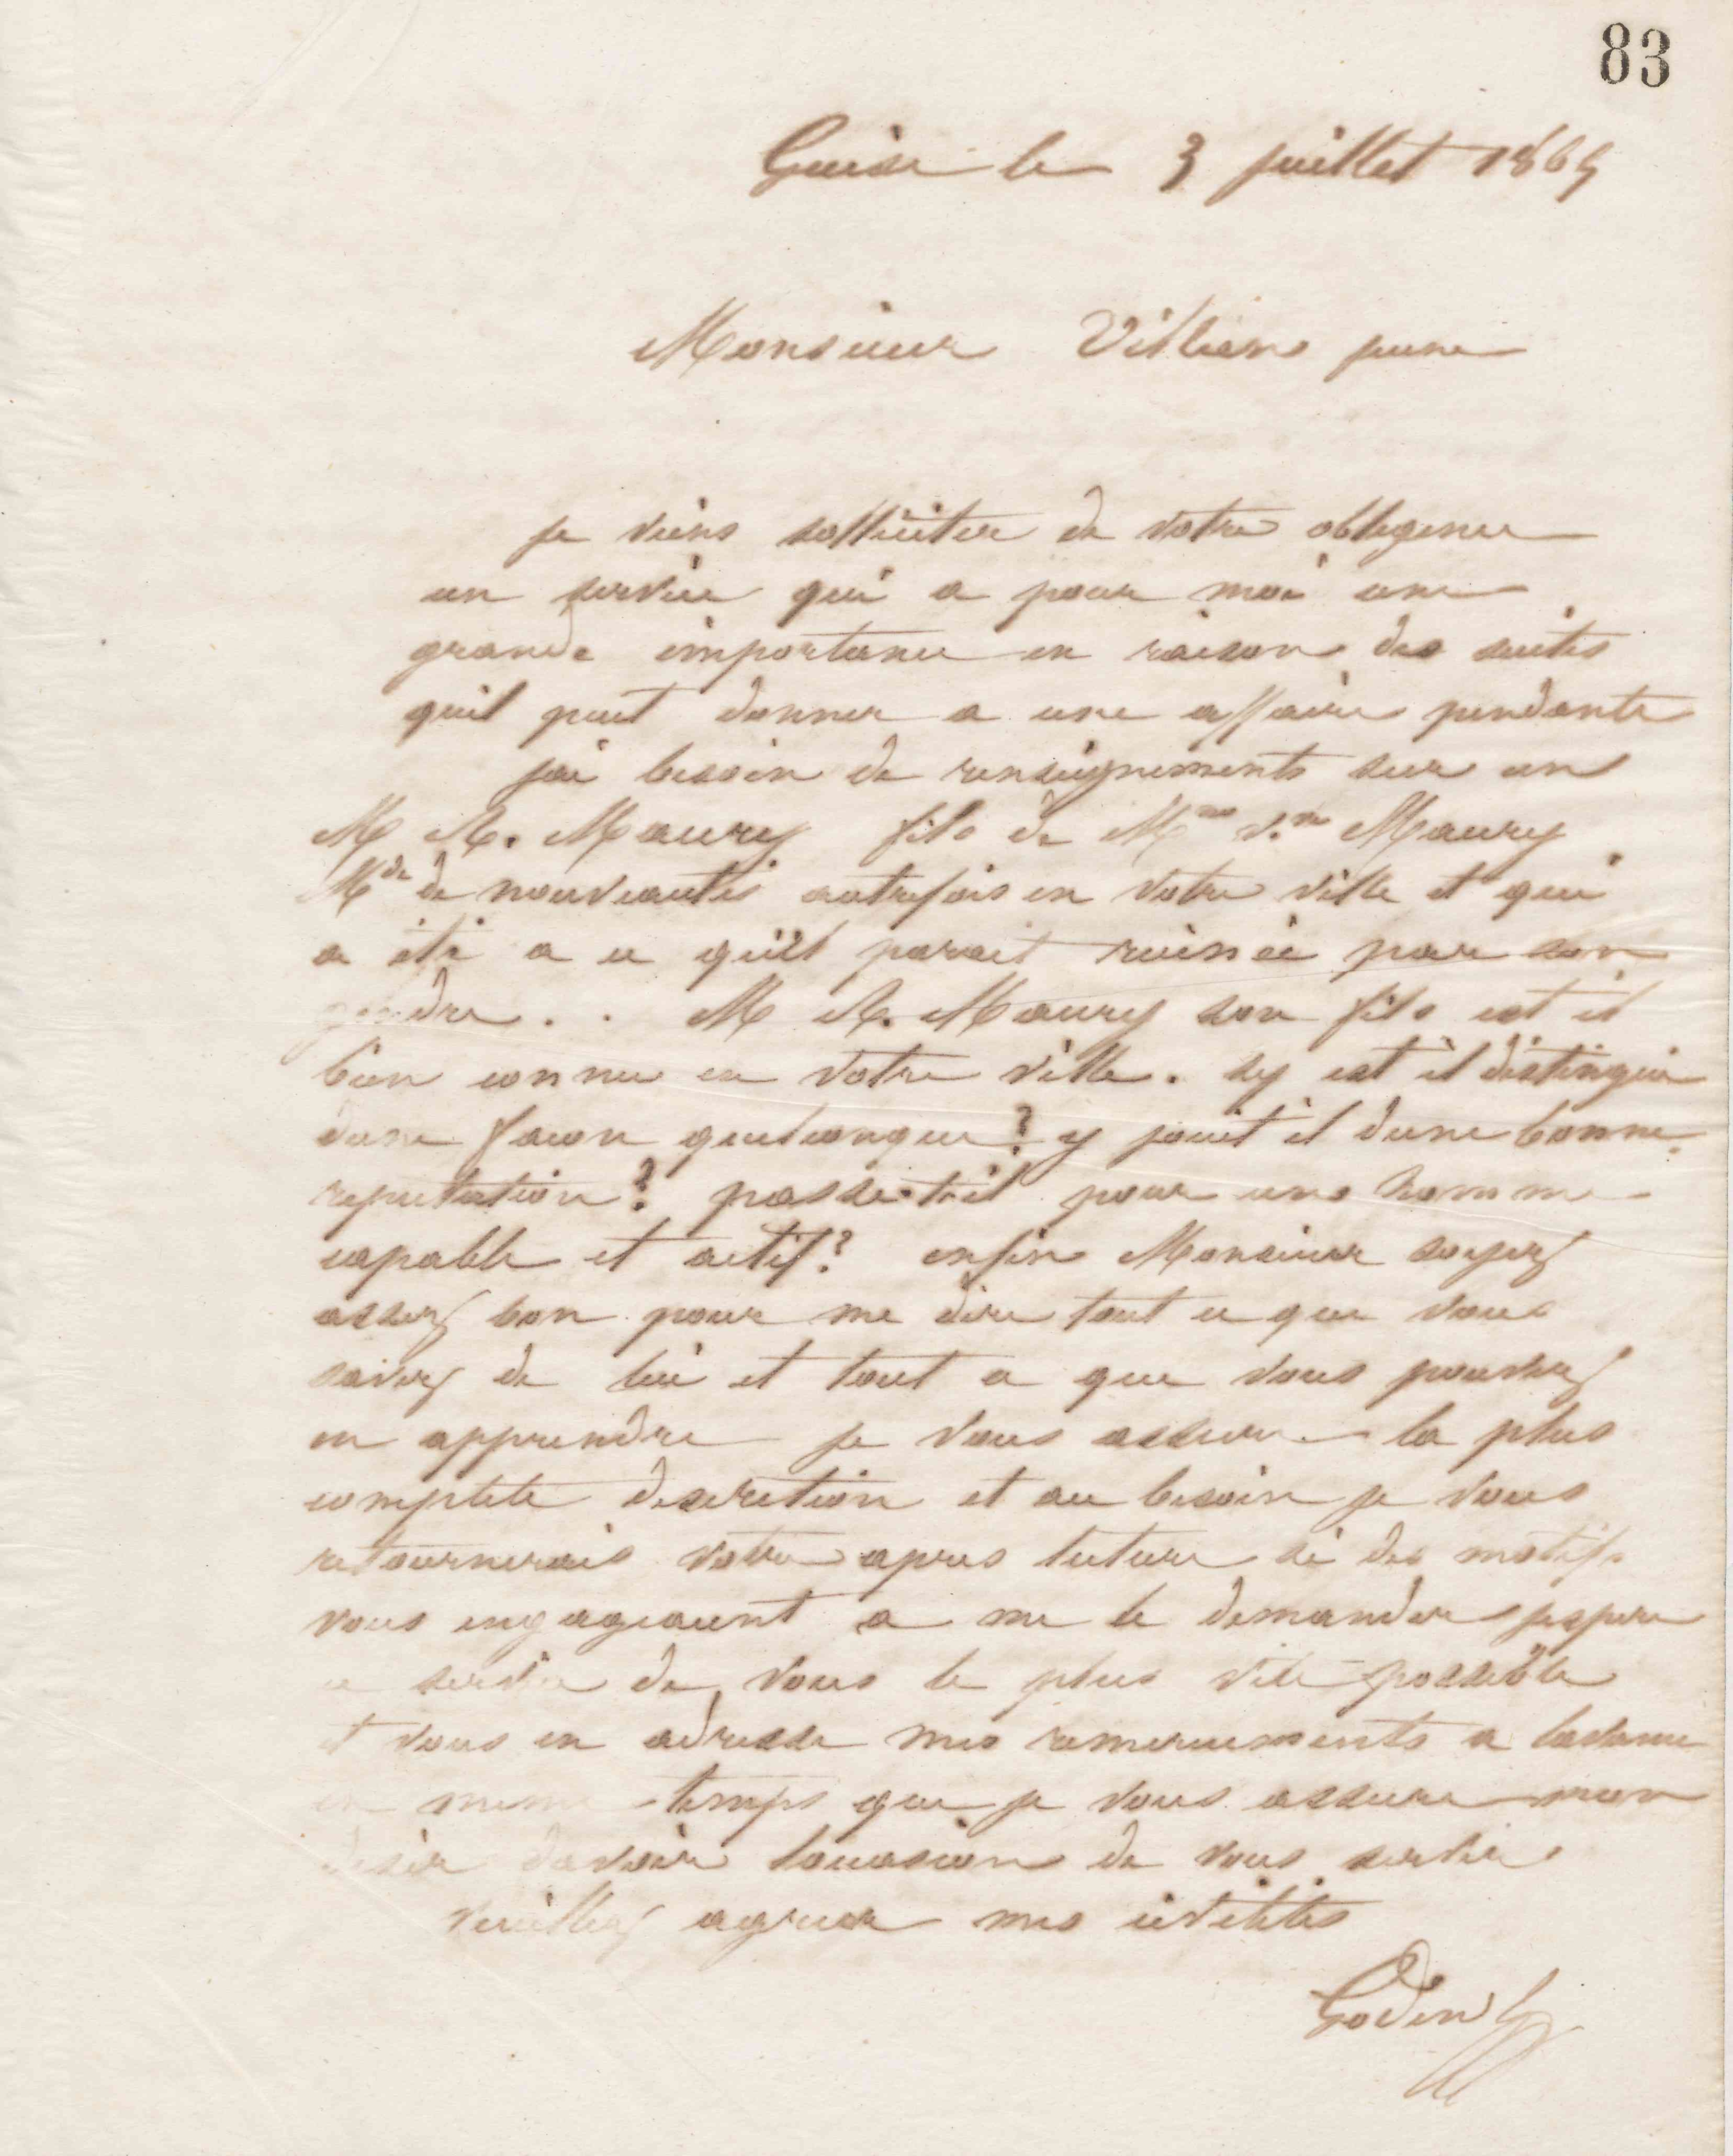 83
Guise le 3 juillet 1865
Monsieur Villiers jeune
je viens solliciter de votre obligence
un service qui a pour moi une
grande importance en raison des suites
quil peut donner a une affaire pendante
jai besoin de renseignements sur un
M A. Maury fils de Mme Vve Maury
Mde de nouveautés autrefois en votre ville et qui
a été a ce quil parait ruinée par son
gendre . . M A. Maury son fils est il
bien connu en votre ville. sy est il distingué
dune facon quelconque? y jouit il dune bonne
reputation? passe-t-il pour une homme
capable et actif? enfin Monsieur soyez
assez bon pour me dire tout ce que vous
savez de lui et tout ce que vous pourrez
en apprendre je vous assure la plus
complete discretion et au besoin je vous
retournerais votre apres lecture si des motifs
vous engageaient a me le demander jespere
ce service de vous le plus vite possible
et vous en adresse mes remerciements a lavance
en meme temps que je vous assure mon
desir davoir loccasion de vous servir
Veuillez agreer mes civilités
Godin